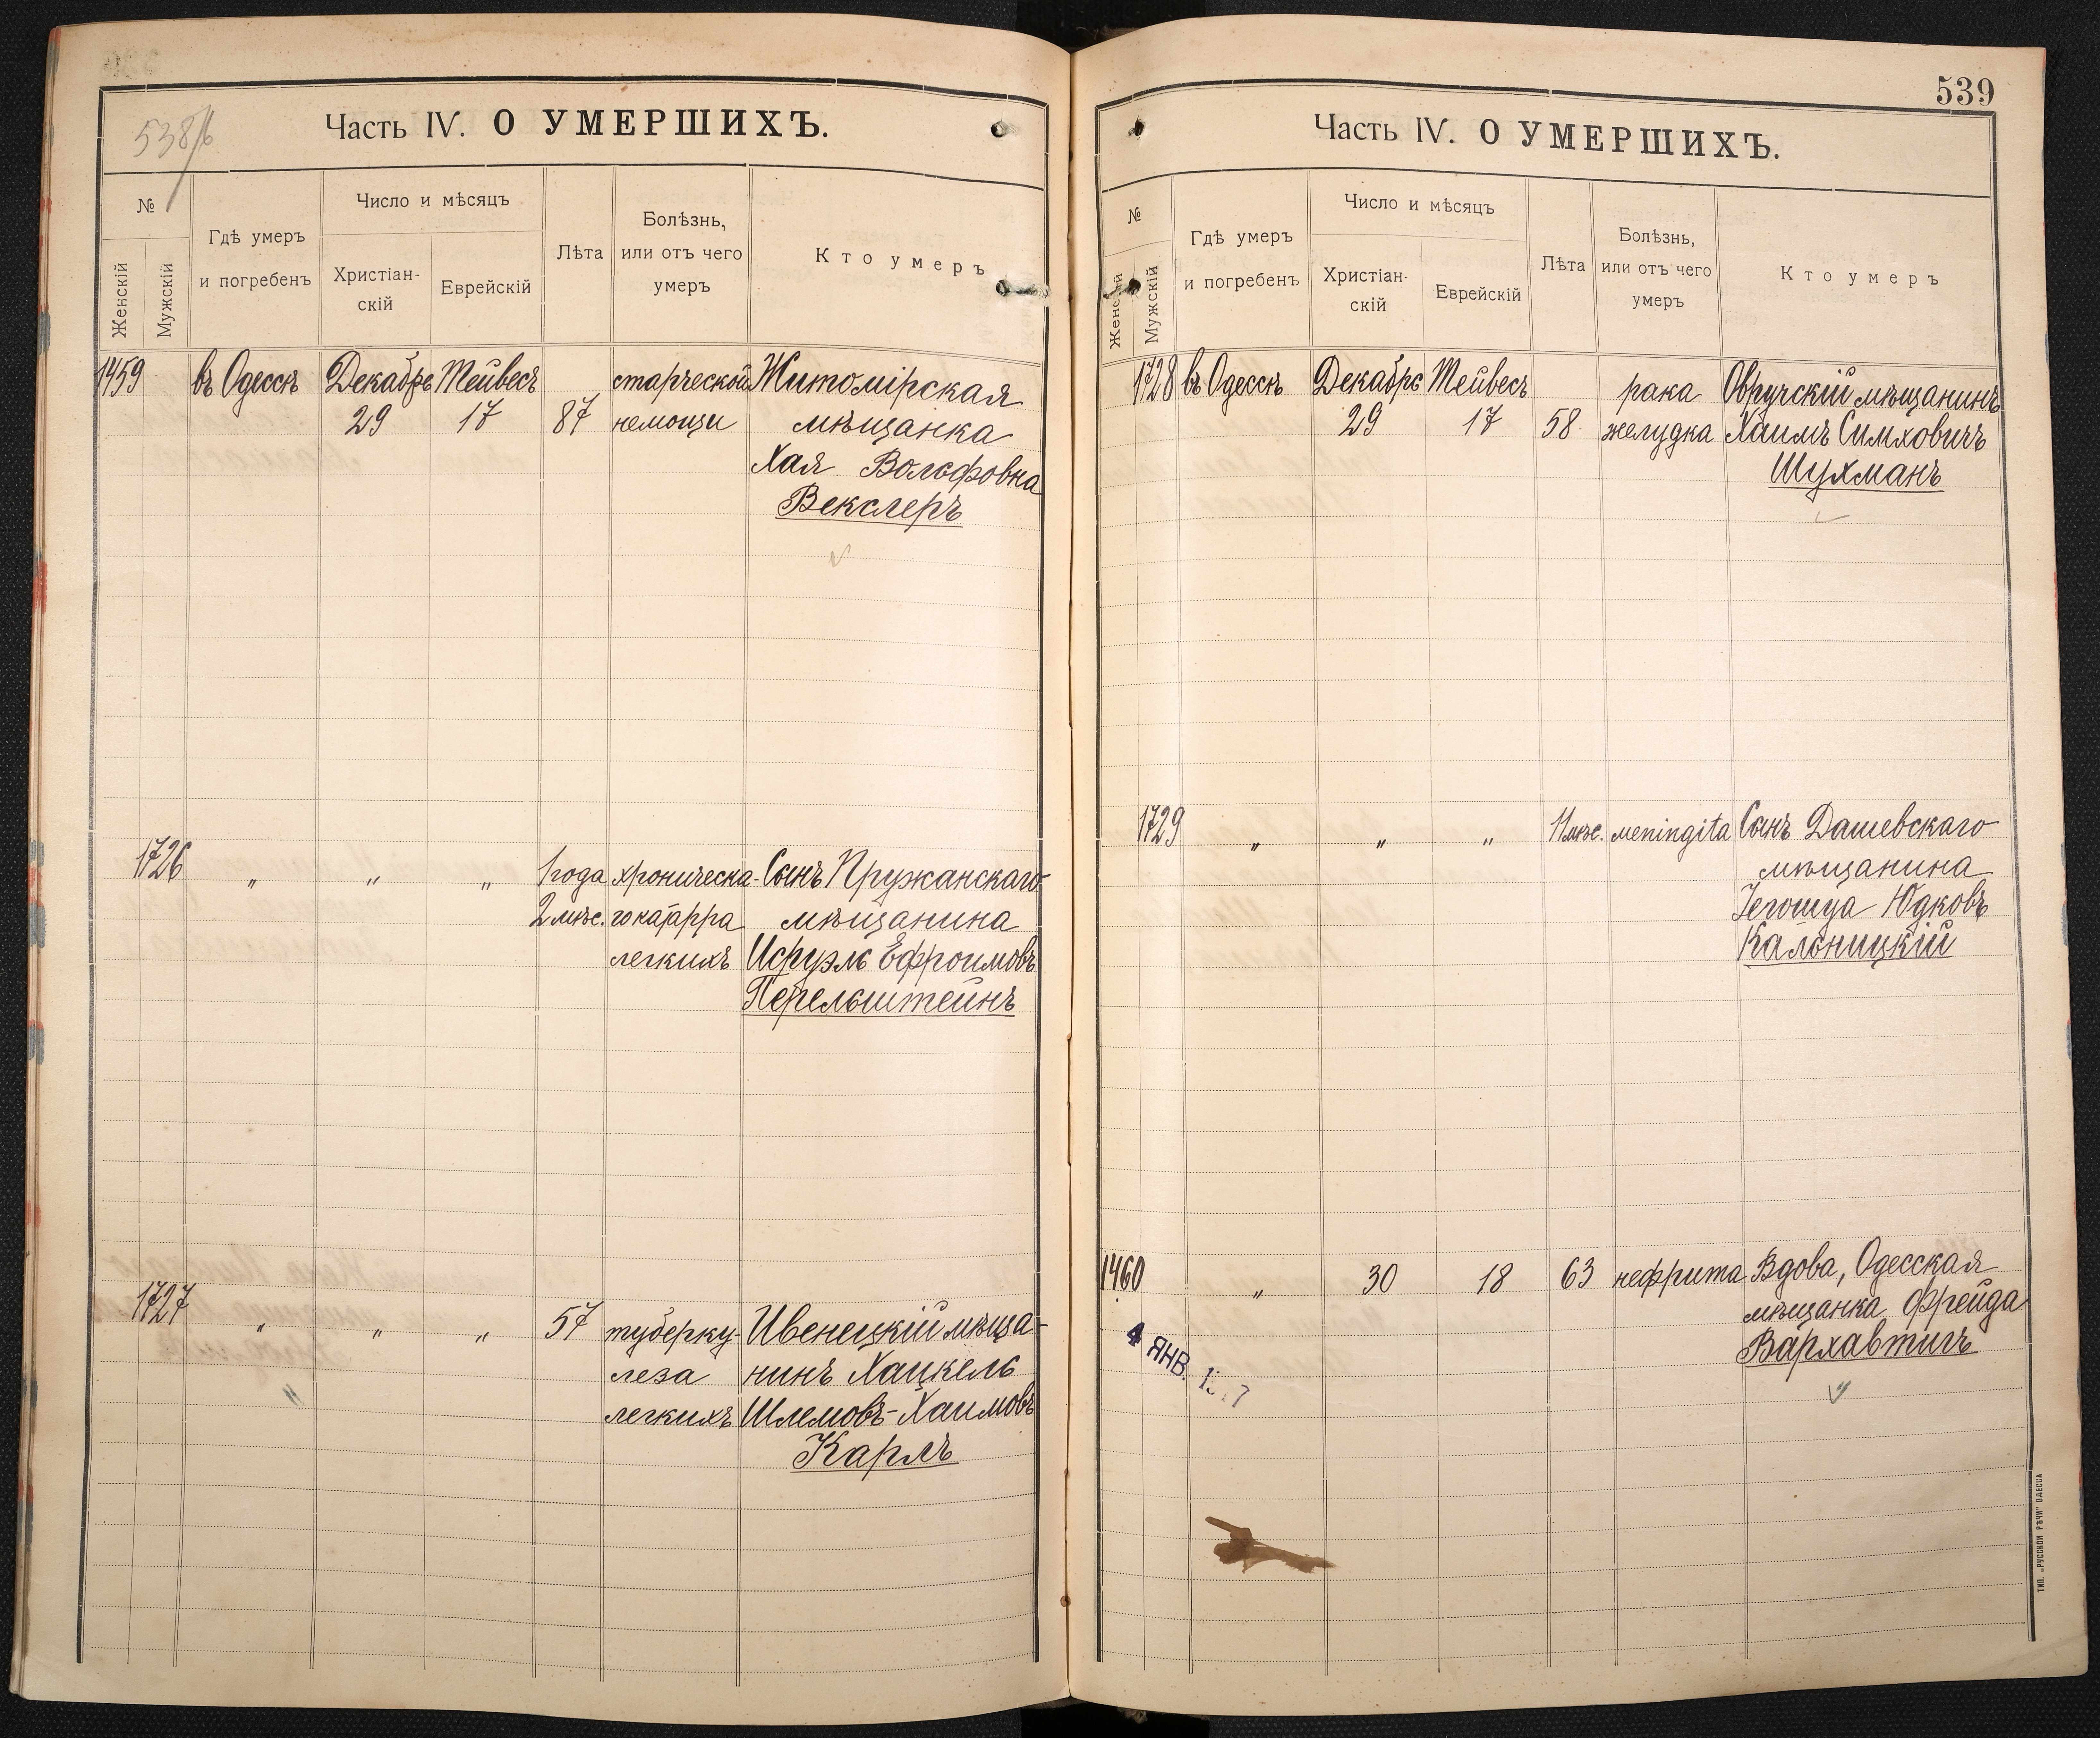 538/б
Часть IV. О УМЕРШИХЪ.
№
Женскій
Мужскій
Гдѣ умеръ
и погребенъ
Число и мѣсяцъ
Христіан-
скій
Еврейскій
Лѣта
Болѣзнь,
или отъ чего
умеръ
Кто умеръ
1459 въ Одессѣ Декабрь Тейвесъ старческой Житомірская
29 17 87 немощи мѣщанка
Хая Вольфовна
Векслеръ
1726 " " " 1 года хроническа- Сынъ Пружанскаго
2 мѣс. го катарра мѣщанина
легкихъ Исруэль Ефроимовъ
Перельштейнъ
1727 " " " 57 туберку- Ивенецкій мѣща-
леза нинъ Хацкель
легкихъ Шлемовъ-Хаимовъ
Карлъ
539
Часть IV. О УМЕРШИХЪ.
№
Женскій
Мужскій
Гдѣ умеръ
и погребенъ
Число и мѣсяцъ
Христіан-
скій
Еврейскій
Лѣта
Болѣзнь,
или отъ чего
умеръ
Кто умеръ
1728 въ Одессѣ Декабрь Тейвесъ рака Овручскій мѣщанинъ
29 17 58 желудка Хаимъ Симховичъ
Шухманъ
1729 " " " 11 мѣс. меningita Сынъ Дашевскаго
мѣщанина
Іегошуа Юдковъ
Кальницкій
1460 " 30 18 63 нефрита Вдова, Одесская
мѣщанка Фрейда
Вархавтигъ
4 ЯНВ.
ТИП. „РУССКОЙ РѢЧИ" ОДЕССА